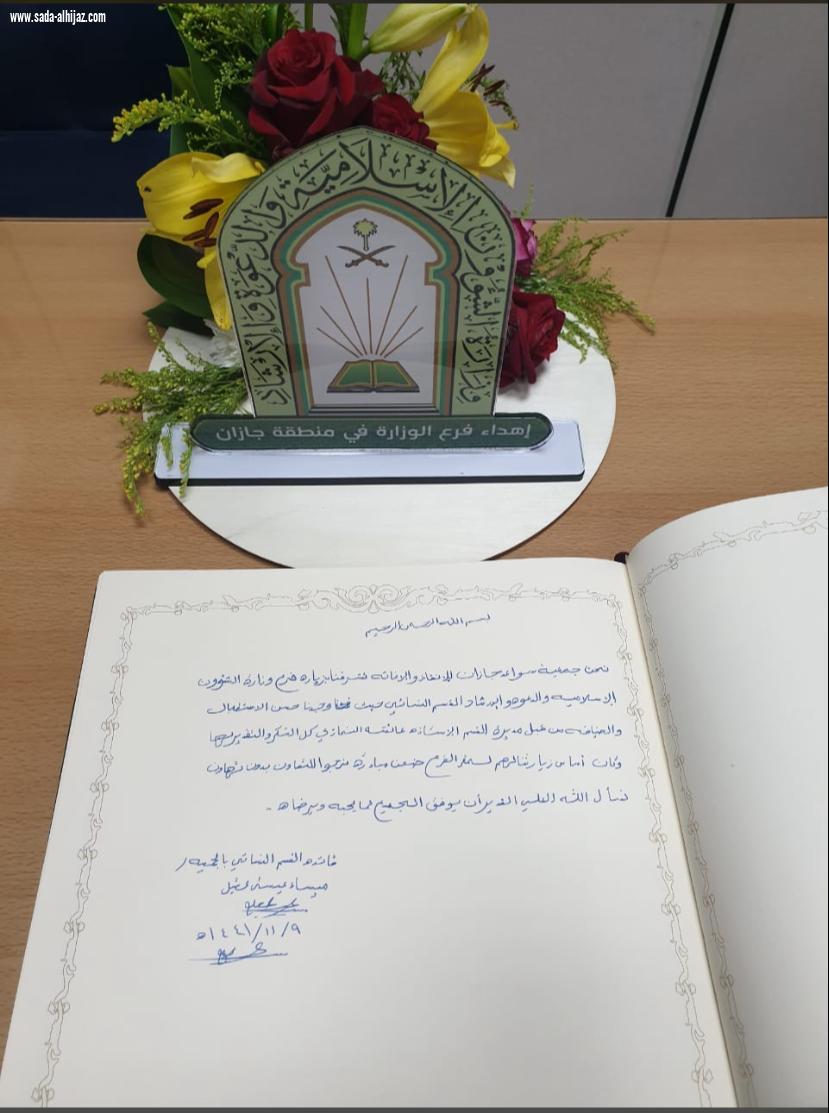 www.sada-alhijaz.com
وزارة الشؤون الإسلامية والدعوة والإرشاد
إهداء فرع الوزارة في منطقة جازان
بسم الله الرحمن الرحيم
نحن جمعية سواعد جازان للإنقاذ والإغاثة تشرفنا بزيارة فرع وزارة الشؤون
الإسلامية والدعوة والإرشاد القسم النسائي حيث وجدنا حسن الاستقبال
والضيافة من قبل مديرة القسم الأستاذة عائشة فلها كل الشكر والتقدير
وكان أساس زيارتنا لهم ضمن مبادرة نرجو التعاون بدون تهاون
نسأل الله العلي القدير أن يوفق الجميع لما يحبه ويرضاه -
قائدة القسم النسائي بالجمعية /
ميساء عيسى
١٤٤١/١١/٩هـ